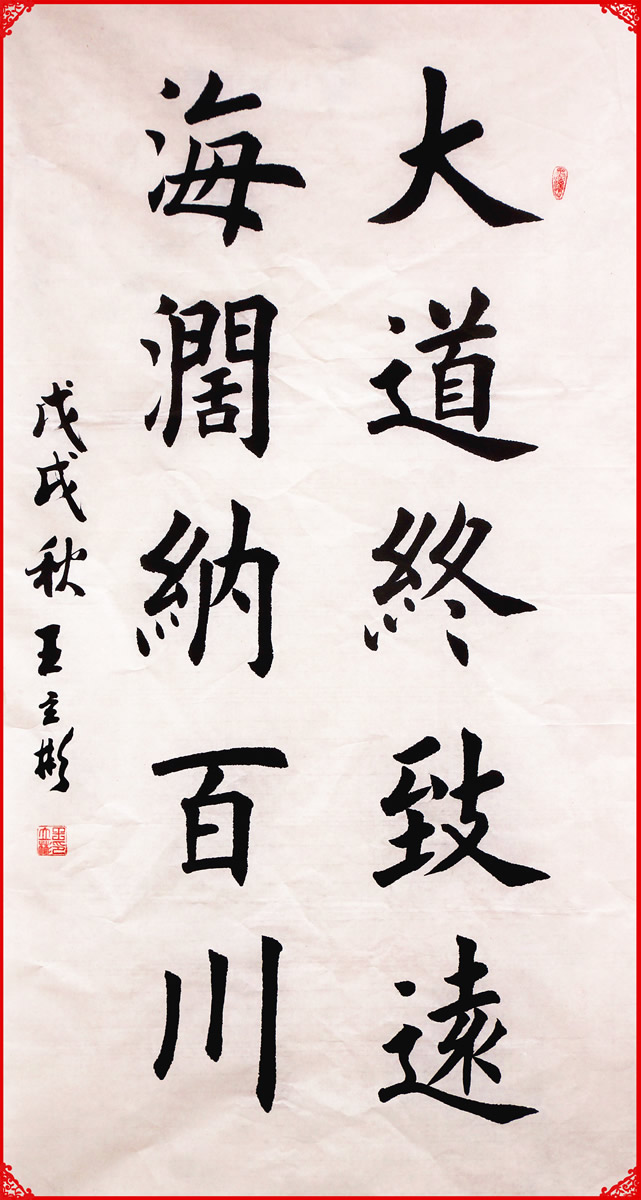 大道終致遠
海濶納百川
戊戌秋 王立彬